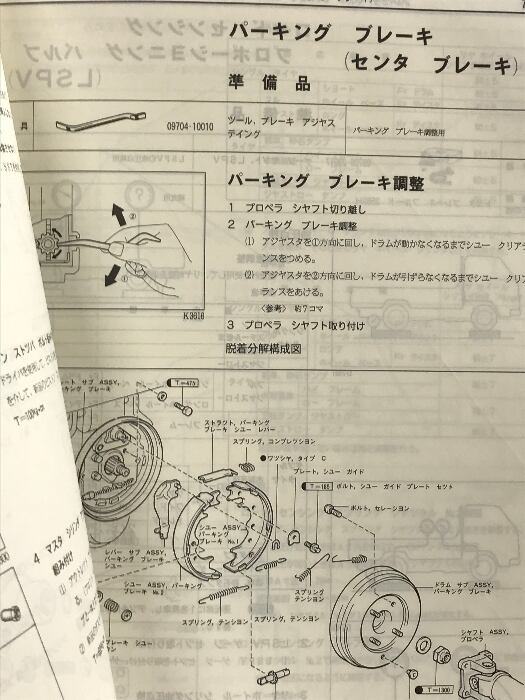 パーキング ブレーキ
(センタ ブレーキ)
準 備 品
具
09704-10010
ツール、ブレーキ アジャス
テイング
パーキング ブレーキ調整用
パーキング ブレーキ調整
1 プロペラ シヤフト切り離し
2 パーキング ブレーキ調整
(1) アジヤスタを①方向に回し、ドラムが動かなくなるまでシユー クリアラ
ンスをつめる。
(2) アジヤスタを②方向に回し、ドラムが引ずらなくなるまでシユー クリア
ランスをあける。
〈参考〉 約7コマ
②
①
K3616
3 プロペラ シヤフト取り付け
脱着分解構成図
ート サブ ASSY,
ーキング ブレーキ
T=475
ストラット, パーキング
ブレーキ シユー レバー
スプリング, コンプレツシヨン
●ワツシヤ, タイプ C
プレート, シユー ガイド
T=185
ボルト, シユー ガイド プレート セツト
ボルト, セレーシヨン
シユー ASSY,
パーキング
ブレーキ No.1
レバー サブ ASSY,
パーキング ブレーキ
シユー
シユー ASSY, パーキング
ブレーキ No.2
スプリング, テンシヨン
スプリング, テンシヨン
スプリング
テンシヨン
ドラム サブ ASSY,
パーキング ブレーキ
シヤフト ASSY,
プロペラ
T=1300
4 マスタ シリンダ
組み付け